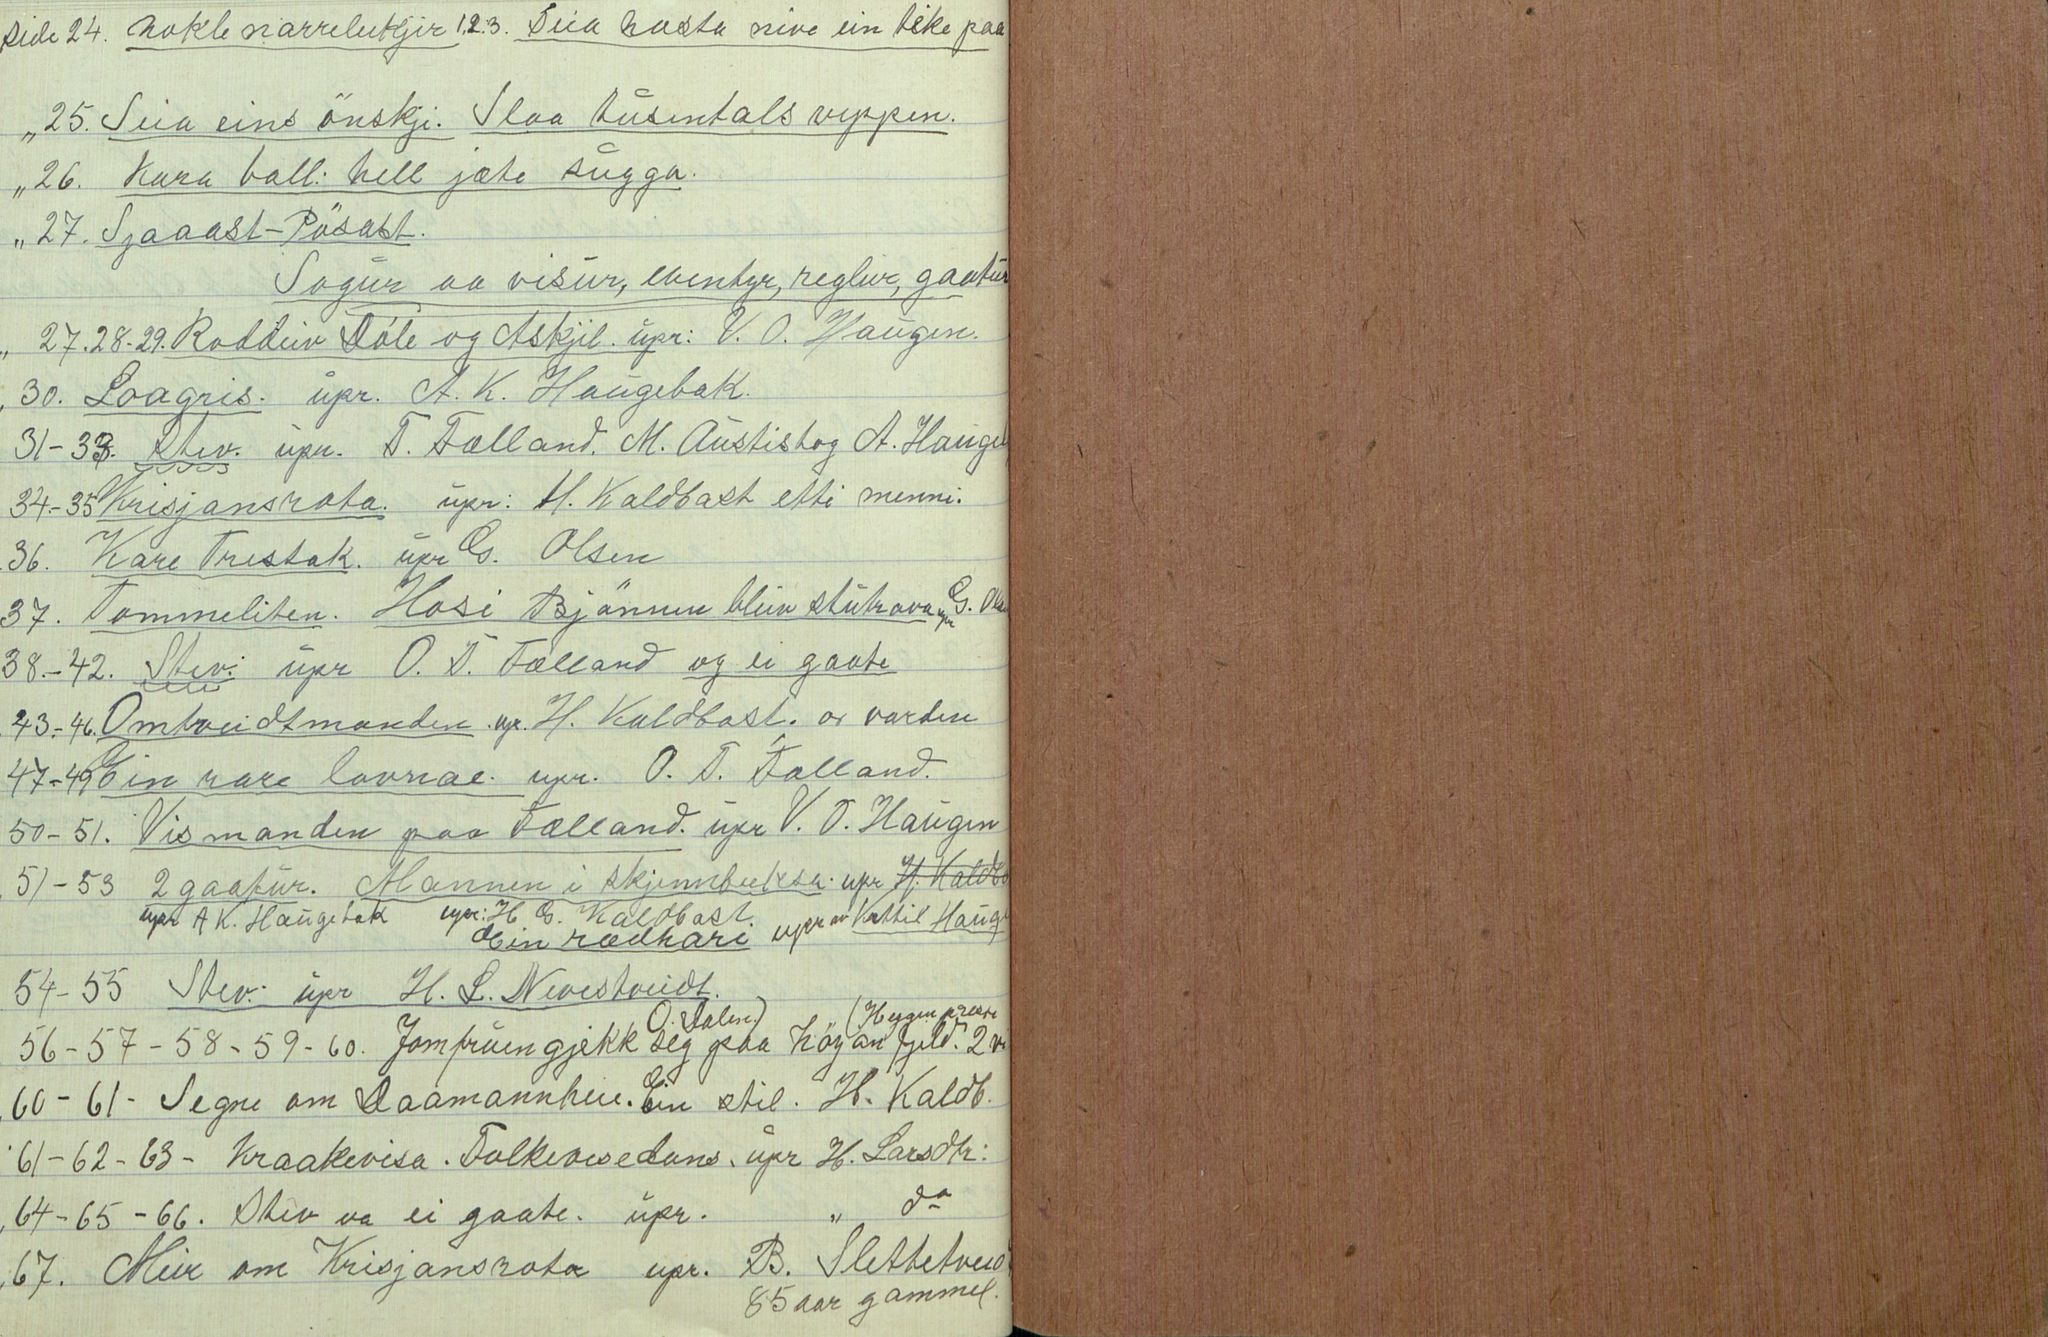 Side 24. Nokle narreleitkjir 1.2.3. Seia hosta nive ein teke paa
„ 25. Seia eins önskji. Slaa tusentals veppen.
„ 26. Kara ball: hell jæte sugga.
„ 27. Sjaaast-Pösast.
Sogur aa visur, eventyr, reglur, gaatur
„ 27.28-29. Roddeiv Döle og Askjil. upr: V. O. Haugen.
30. Loagris. upr. A. K. Haugebak.
31-33. Stev. upr. T. Fælland. M. Austistog A. Haugeb
34-35 Krisjansrota. upr: H. Kaldbast etti menni.
36. Kare Trestak. upr G. Olsen
37. Tommeliten. Hosi Bjönnen bleiv stutrova upr G. Olsen
38.-42. Stev: upr O. T. Fælland og ei gaate
43-46. Omtveidtmanden. upr. H. Kaldbast. or varden
47-49 Ein rare lovnae. upr. O. T. Fælland.
50-51. Vismanden paa Fælland. upr V. O. Haugen
51-53 2 gaatur. Mannen i skjinnbuksa. upr H. Kaldba
upr A K. Haugebak upr: H G. Kaldbast
Ein rædhari upr av Kettil Hauge
54-55 Stev: upr H. L. Nevestveidt.
O. Dalen) (Heggen præere
56-57-58-59-60. Jomfruen gjekk seg paa höyan fjeld. 2 vi
60-61- Segne om Daamannheie. Ein stil. H. Kaldb.
61-62-63- Kraakevisa. Folkevisedans. upr H. Larsdtr:
64-65-66. Stev va ei gaate. upr. „ do
67. Meir om Krisjansrota upr. B. Slettetveid
85 aar gammel.